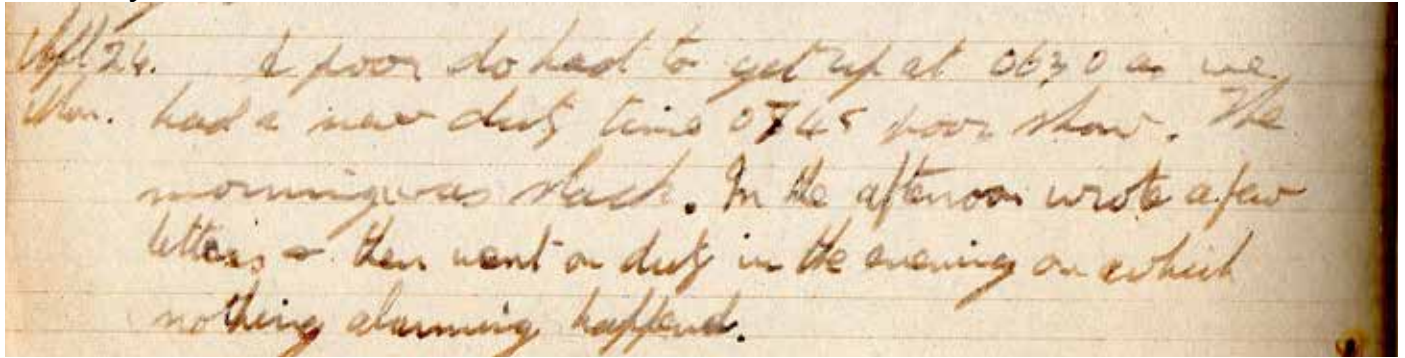 Apl 24. A poor do had to get up at 0630 as we
Mon. had a new duty time 0745 poor show. The
morning was slack. In the afternoon wrote a few
letters & then went on duty in the evening on which
nothing alarming happend.